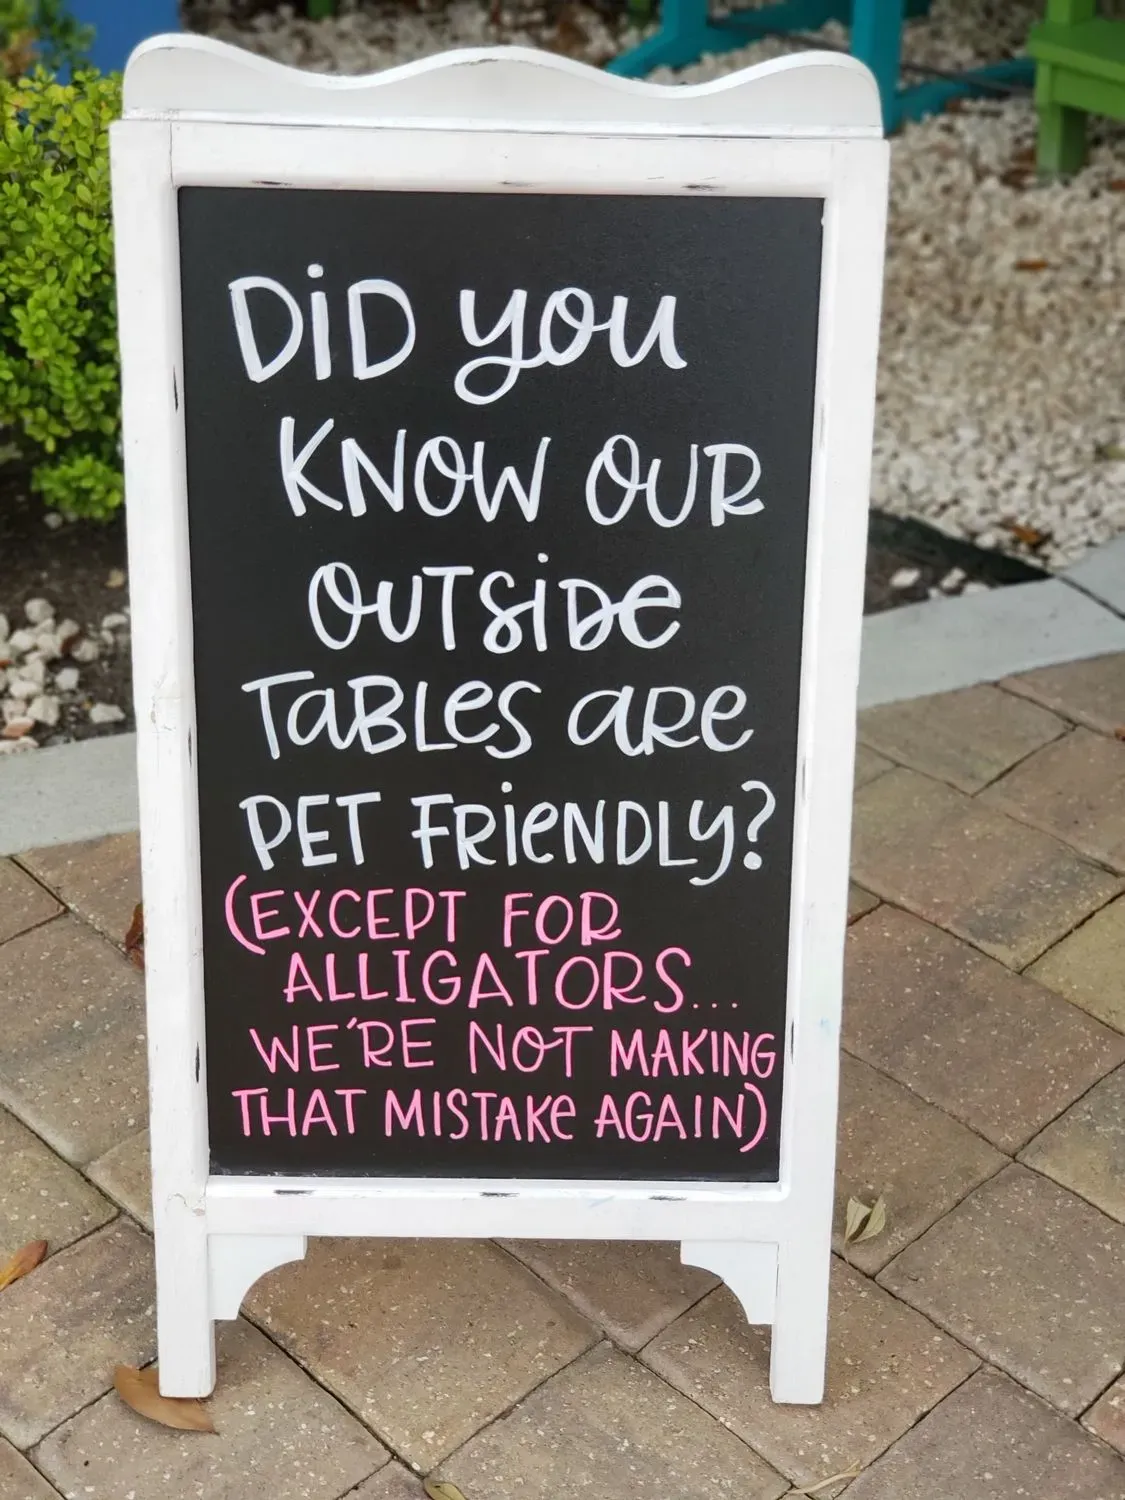 DiD you
KNOW OUR
OUTSiDe
TaBLeS aRe
PET FRieNDLy?
(EXCEPT FOR
ALLIGATORS...
WE'RE NOT MAKING
THAT MISTAKe AGAIN)